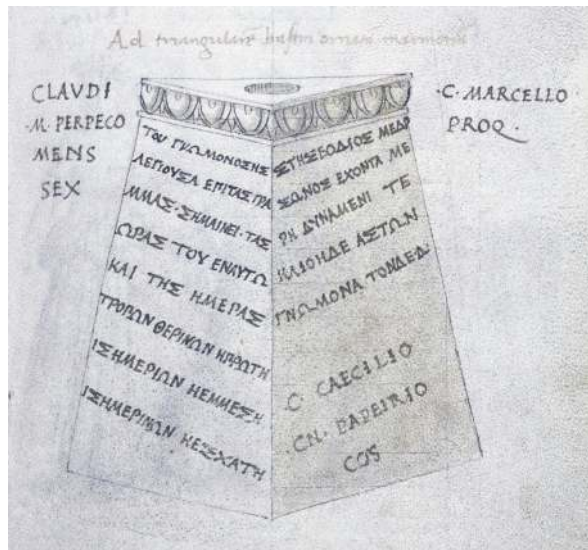 Ad triangularẽ basim
CLAVDI
·M· PERPECO
MENS
SEX
ΤΟΥ ΓΝΩΜΟΝΟΣΗΣ
ΛΕΠΟΥΣΑ ΕΠΙΤΑΣ ΓΡΑ
ΜΜΑΣ·ΣΗΜΑΙΝΕΙ·ΤΑΣ
ΩΡΑΣ ΤΟΥ ΕΝΑΥΤΩ
ΚΑΙ ΤΗΣ ΗΜΕΡΑΣ
ΤΡΟΠΩΝ ΘΕΡΙΝΩΝ ΗΠΡΩΤΗ
ΙΣΗΜΕΡΙΩΝ ΗΕΜΜΕΣΗ
ΙΣΗΜΕΡΙΝΩΝ ΗΕΣΧΑΤΗ
ΣΤΗΣΕΒΟΔΙΟΣ ΜΕΔΟ
ΣΩΝΟΣ ΕΧΟΝΤΑ ΜΕ
ΡΗ ΔΥΝΑΜΕΝΙ ΤΕ
ΗΛΙΟΗΔΕ ΑΣΤΩΝ
ΓΝΩΜΟΝΑ ΤΟΝΔΕΔ·
C CAECILIO
·CN· PAPEIRIO
COS
·C· MARCELLO
PROQ·